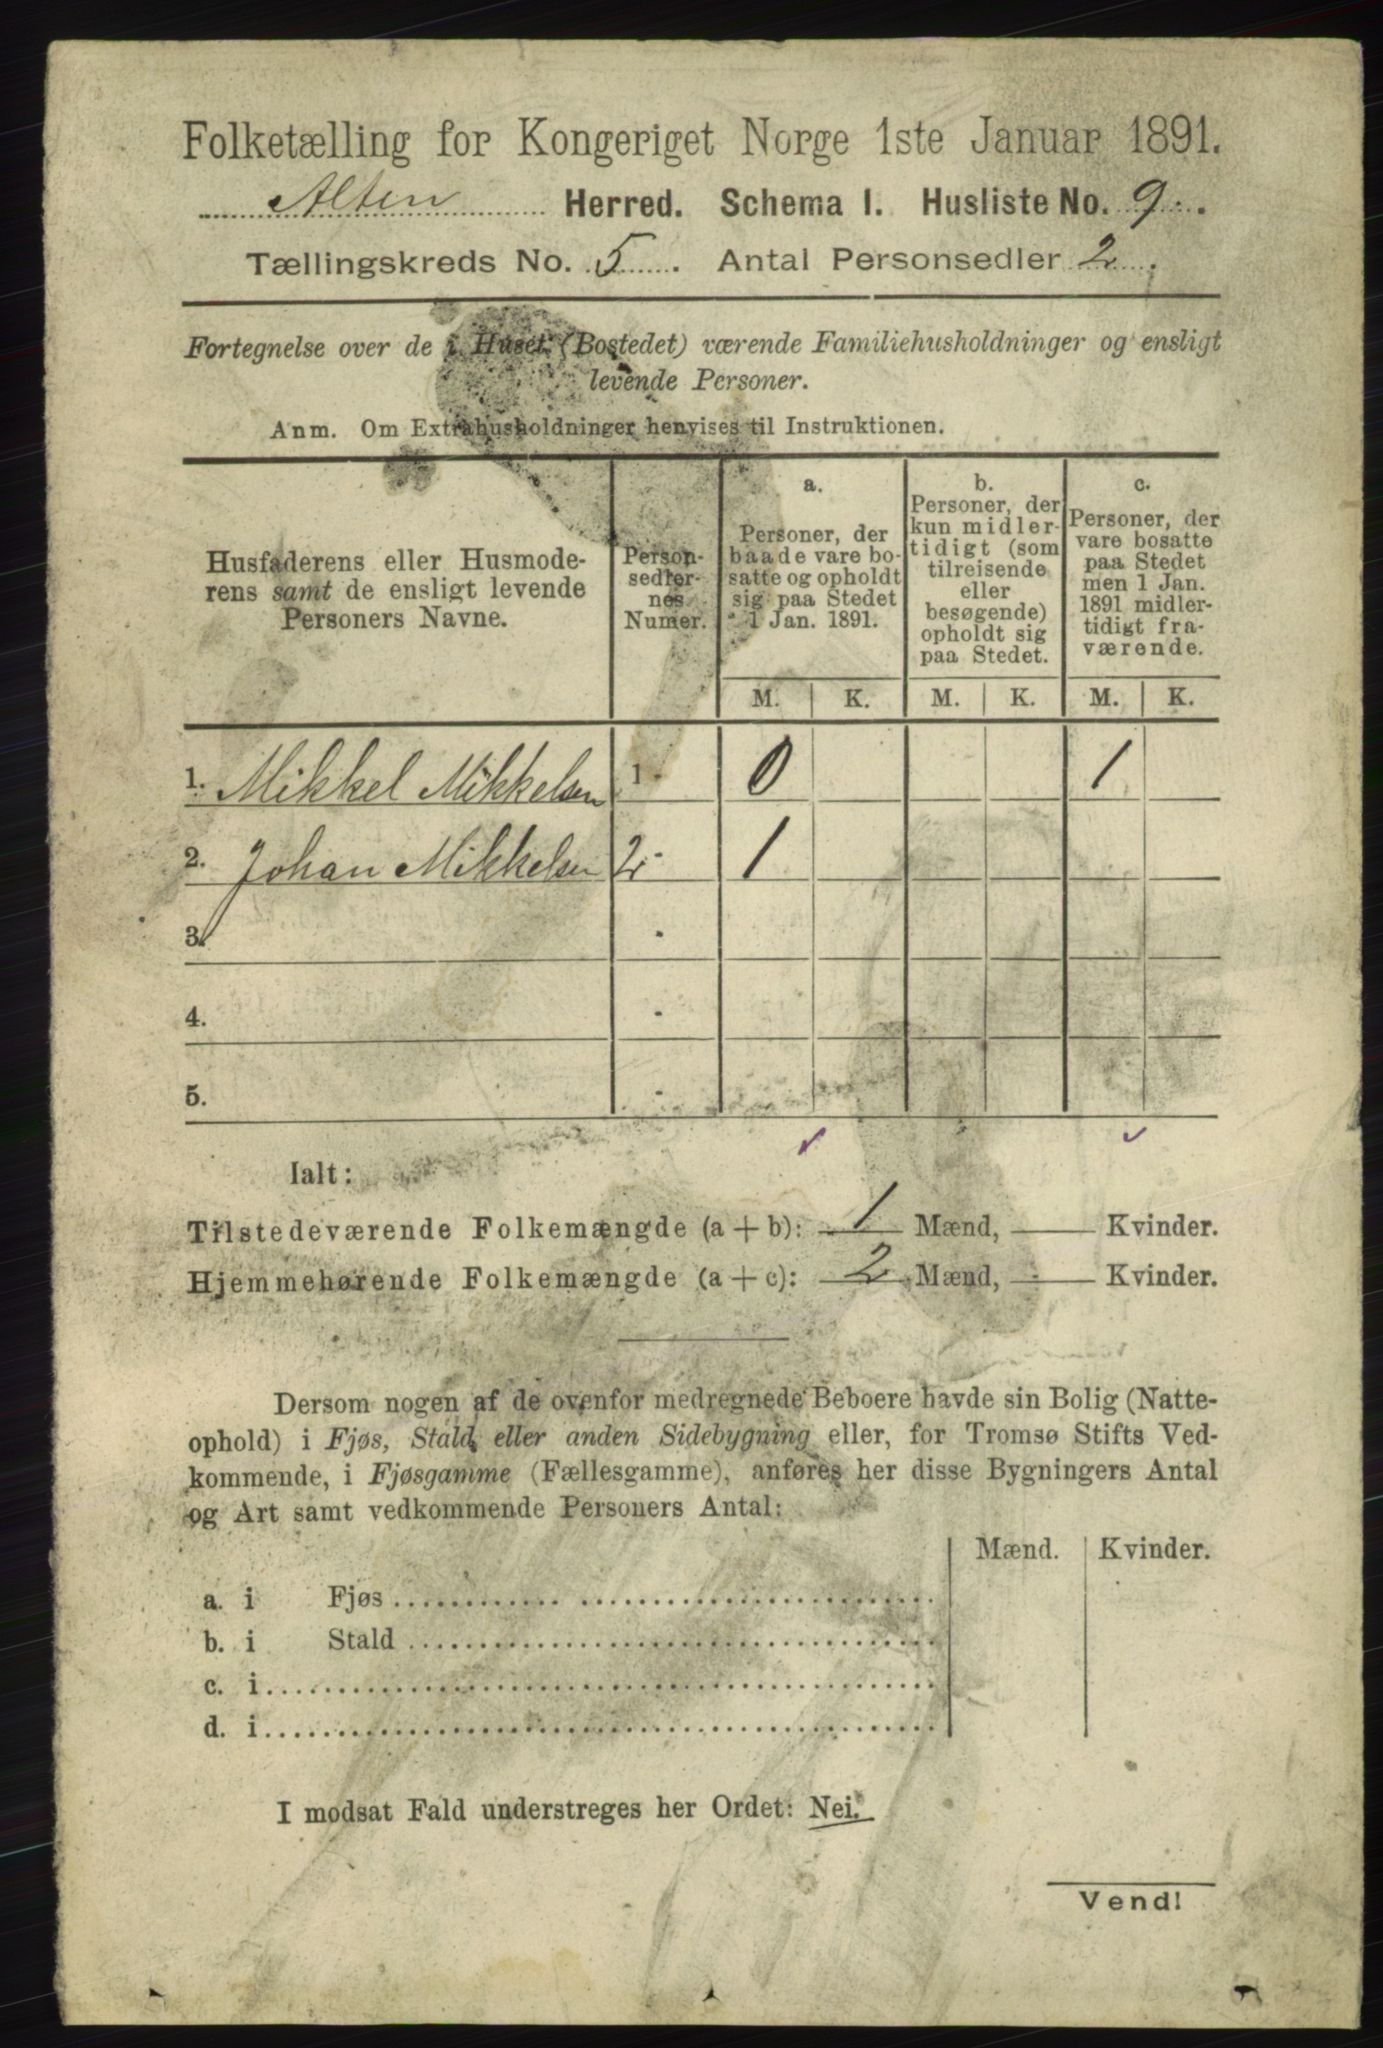 Folketælling for Kongeriget Norge 1ste Januar 1891.
Alten Herred. Schema I. Husliste No. 9.
Tællingskreds No. 5. Antal Personsedler 2.
Fortegnelse over de i Huset (Bostedet) værende Familiehusholdninger og ensligt
levende Personer.
Anm. Om Extrahusholdninger henvises til Instruktionen.
Husfaderens eller Husmode-
rens samt de ensligt levende
Personers Navne.
Person-
sedler-
nes
Numer.
a.
Personer, der
baade vare bo-
satte og opholdt
sig paa Stedet
1 Jan. 1891.
b.
Personer, der
kun midler-
tidigt (som
tilreisende
eller
besøgende)
opholdt sig
paa Stedet.
c.
Personer, der
vare bosatte
paa Stedet
men 1 Jan.
1891 midler-
tidigt fra-
værende.
M. K. M. K. M. K.
1. Mikkel Mikkelsen 1 - 0 1
2. Johan Mikkelsen 2 - 1
3. -
4. -
5. -
Ialt:
Tilstedeværende Folkemængde (a + b): 1 Mænd, Kvinder.
Hjemmehørende Folkemængde (a + c): 2 Mænd, Kvinder.
Dersom nogen af de ovenfor medregnede Beboere havde sin Bolig (Natte-
ophold) i Fjøs, Stald eller anden Sidebygning eller, for Tromsø Stifts Ved-
kommende, i Fjøsgamme (Fællesgamme), anføres her disse Bygningers Antal
og Art samt vedkommende Personers Antal:
Mænd. Kvinder.
a. i Fjøs
b. i Stald
c. i
d. i
I modsat Fald understreges her Ordet: Nei.
Vend!